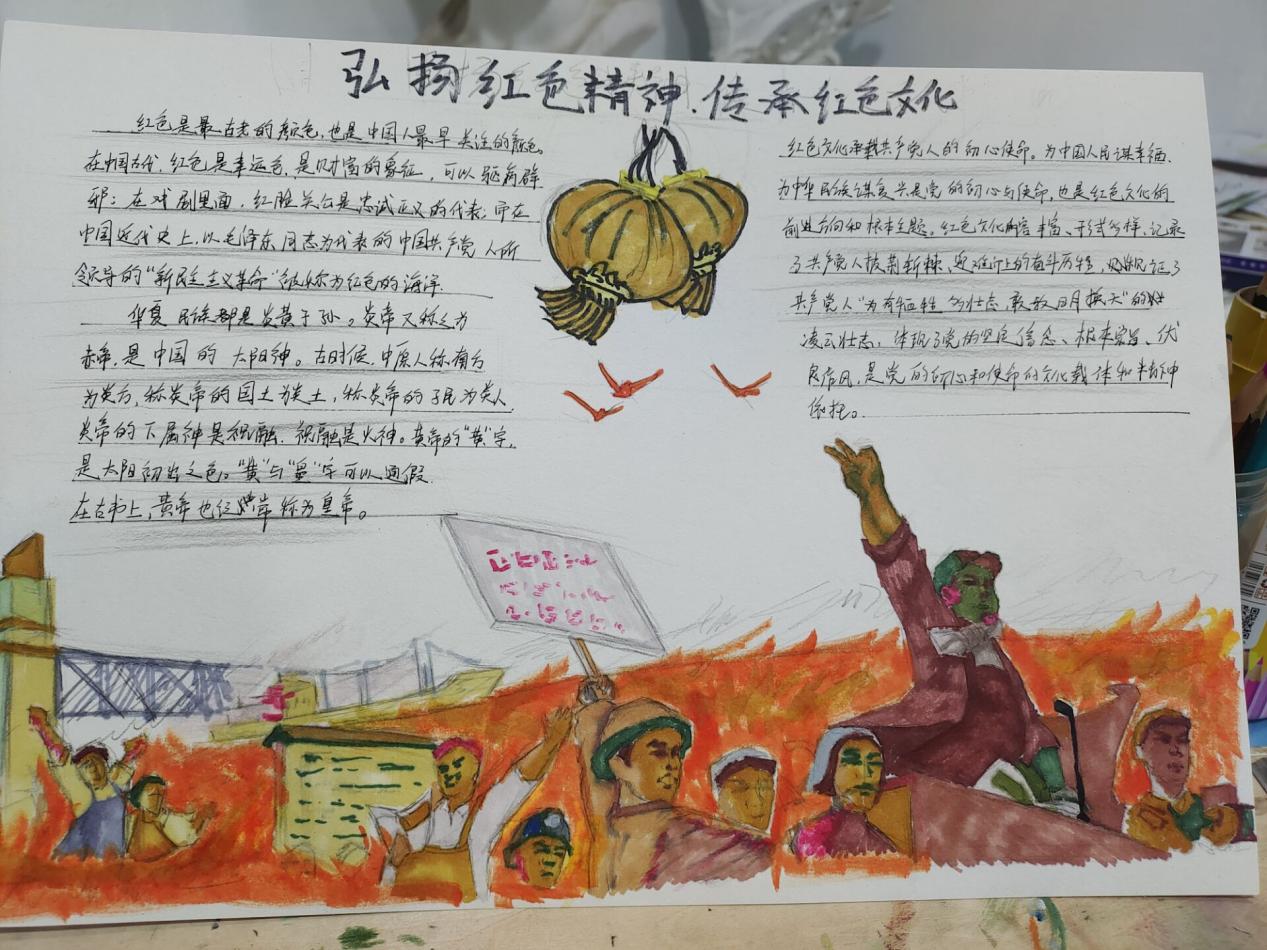 弘扬红色精神.传承红色文化
红色是最古老的颜色,也是中国人最早关注的颜色。
在中国古代,红色是幸运色,是财富的象征,可以驱病辟
邪;在戏剧里面,红脸关公是忠诚正义的代表;而在
中国近代史上,以毛泽东同志为代表的中国共产党人所
领导的“新民主主义革命”被称为红色的海洋.
华夏民族都是炎黄子孙。炎帝又称之为
赤帝,是中国的太阳神。古时候,中原人称南方
为炎方,称炎帝的国土为炎土,称炎帝的子民为炎人,
炎帝的下属神是祝融.祝融是火神。黄帝的“黄”字,
是太阳初出之色。“黄”与“皇”字可以通假
在古书上,黄帝也经常称为皇帝。
红色文化承载共产党人的初心使命。为中国人民谋幸福,
为中华民族谋复兴是党的初心与使命,也是红色文化的
前进方向和根本主题。红色文化内容丰富、形式多样,记录
了共产党人披荆斩棘、迎难而上的奋斗历程,见证了
共产党人“为有牺牲多壮志,敢教日月换天”的
凌云壮志,体现了党的坚定信念、根本宗旨、优
良作风,是党的初心和使命的文化载体和精神
依托。